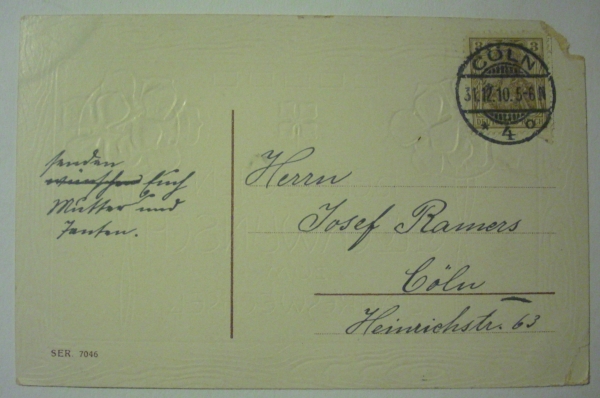 senden
wünschen Euch
Mutter und
Tanten.
SER. 7046
3 3
CÖLN
31.12.10.5-6N
* 4 o
Herrn
Josef Ramers
Cöln
Heinrichstr. 63